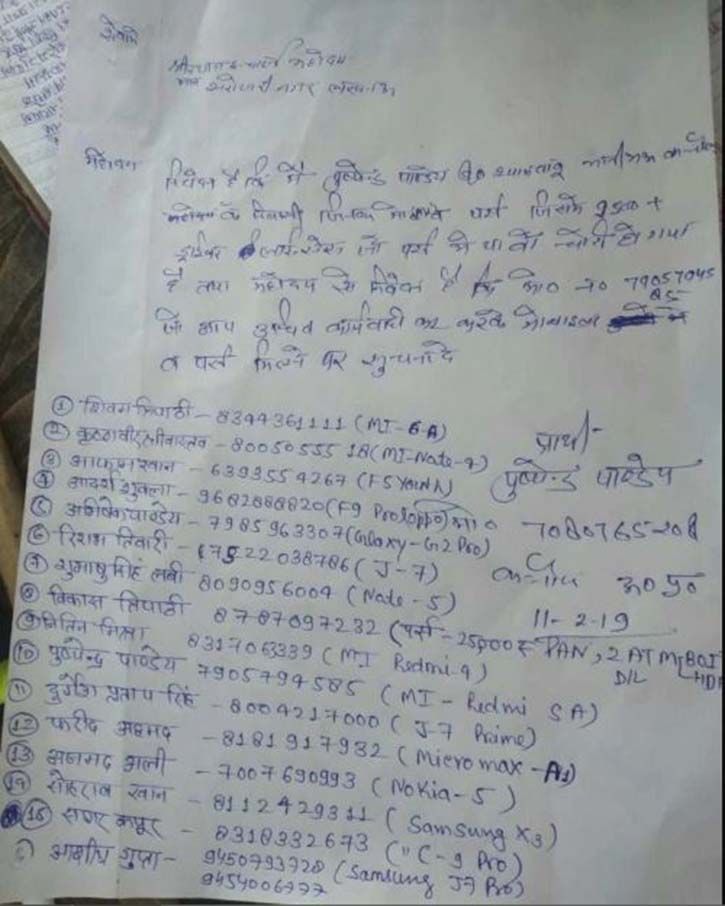 सेवामें
श्रीमान थाना महोदय
थाना सरोजनी नगर लखनऊ
महोदय
निवेदन है कि मैं पुष्पेन्द्र पाण्डेय
के निवासी जिनके पर्स जिसमें +
ड्राईवर लाईसेंस जो पर्स में था वो चोरी हो गया
है तथा महोदय से निवेदन है कि मो० न० 79057945
85
जो आप उचित कार्यवाही कर करके मोबाइल
व पर्स मिलने पर सुचना दे
① शिवम त्रिपाठी - 8344361111 (MI-6A)
② - 8005055518 (MI-Note-4)
③ खान - 6393554267 (F5 Youth)
④ आदर्श शुक्ला - 9682888820 (F9 Pro Oppo)
⑤ अभिषेक पाण्डेय - 7985963307 (Galaxy-G2 Pro)
⑥ रिशभ तिवारी - 7522038786 (J-7)
⑦ सिंह लवी 8090956004 (Note-5)
⑧ विकास त्रिपाठी 8787097232 (पर्स - 25000₹ PAN, 2 ATM BOI
D/L HDF
⑨ नितिन मिश्रा 8317063339 (MI Redmi 4)
⑩ पुष्पेन्द्र पाण्डेय 7905794585 (MI-Redmi 5A)
⑪ दुर्गेश प्रताप सिंह - 8004217000 (J-7 Prime)
⑫ फरीद अहमद - 8181917932 (Micromax-A1)
⑬ अमजद अली - 7007690993 (Nokia-5)
⑭ सोहराब खान - 8112429311 (Samsung X3)
⑮ सागर कपूर - 8318332673 (" C-9 Pro)
आशीष गुप्ता - 9450793728 (Samsung J7 Pro)
9454006777
प्रार्थी
पुष्पेन्द्र पाण्डेय
मो० 7080765208
उ० प्र०
11-2-19